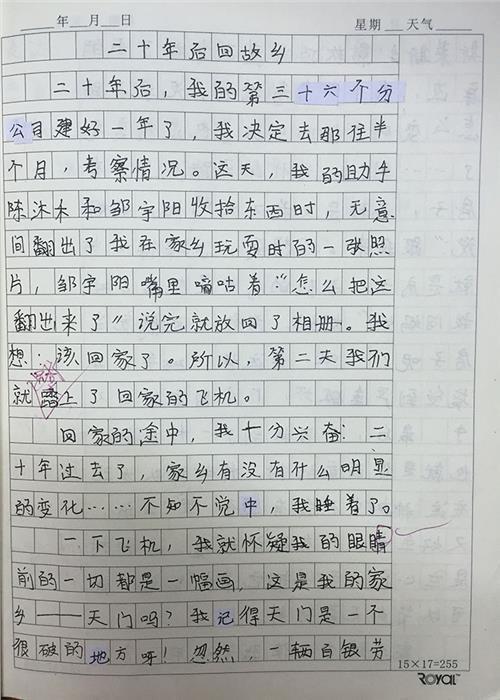 年 月 日 星期 天气
二十年后回故乡
二十年后,我的第三十六个分
公司建好一年了,我决定去那住半
个月,考察情况。这天,我的助手
陈沐木和邹宇阳收拾东西时,无意
间翻出了我在家乡玩耍时的一张照
片,邹宇阳嘴里嘀咕着“怎么把这
翻出来了”说完就放回了相册。我
想:该回家了。所以,第二天我们
就踏上了回家的飞机。
回家的途中,我十分兴奋:二
十年过去了,家乡有没有什么明显
的变化……不知不觉中,我睡着了。
一下飞机,我就怀疑我的眼睛,
前的一切都是一幅画,这是我的家
乡——天门吗?我记得天门是一个
很破的地方呀!忽然,一辆白银劳
15×17=255
ROYAL